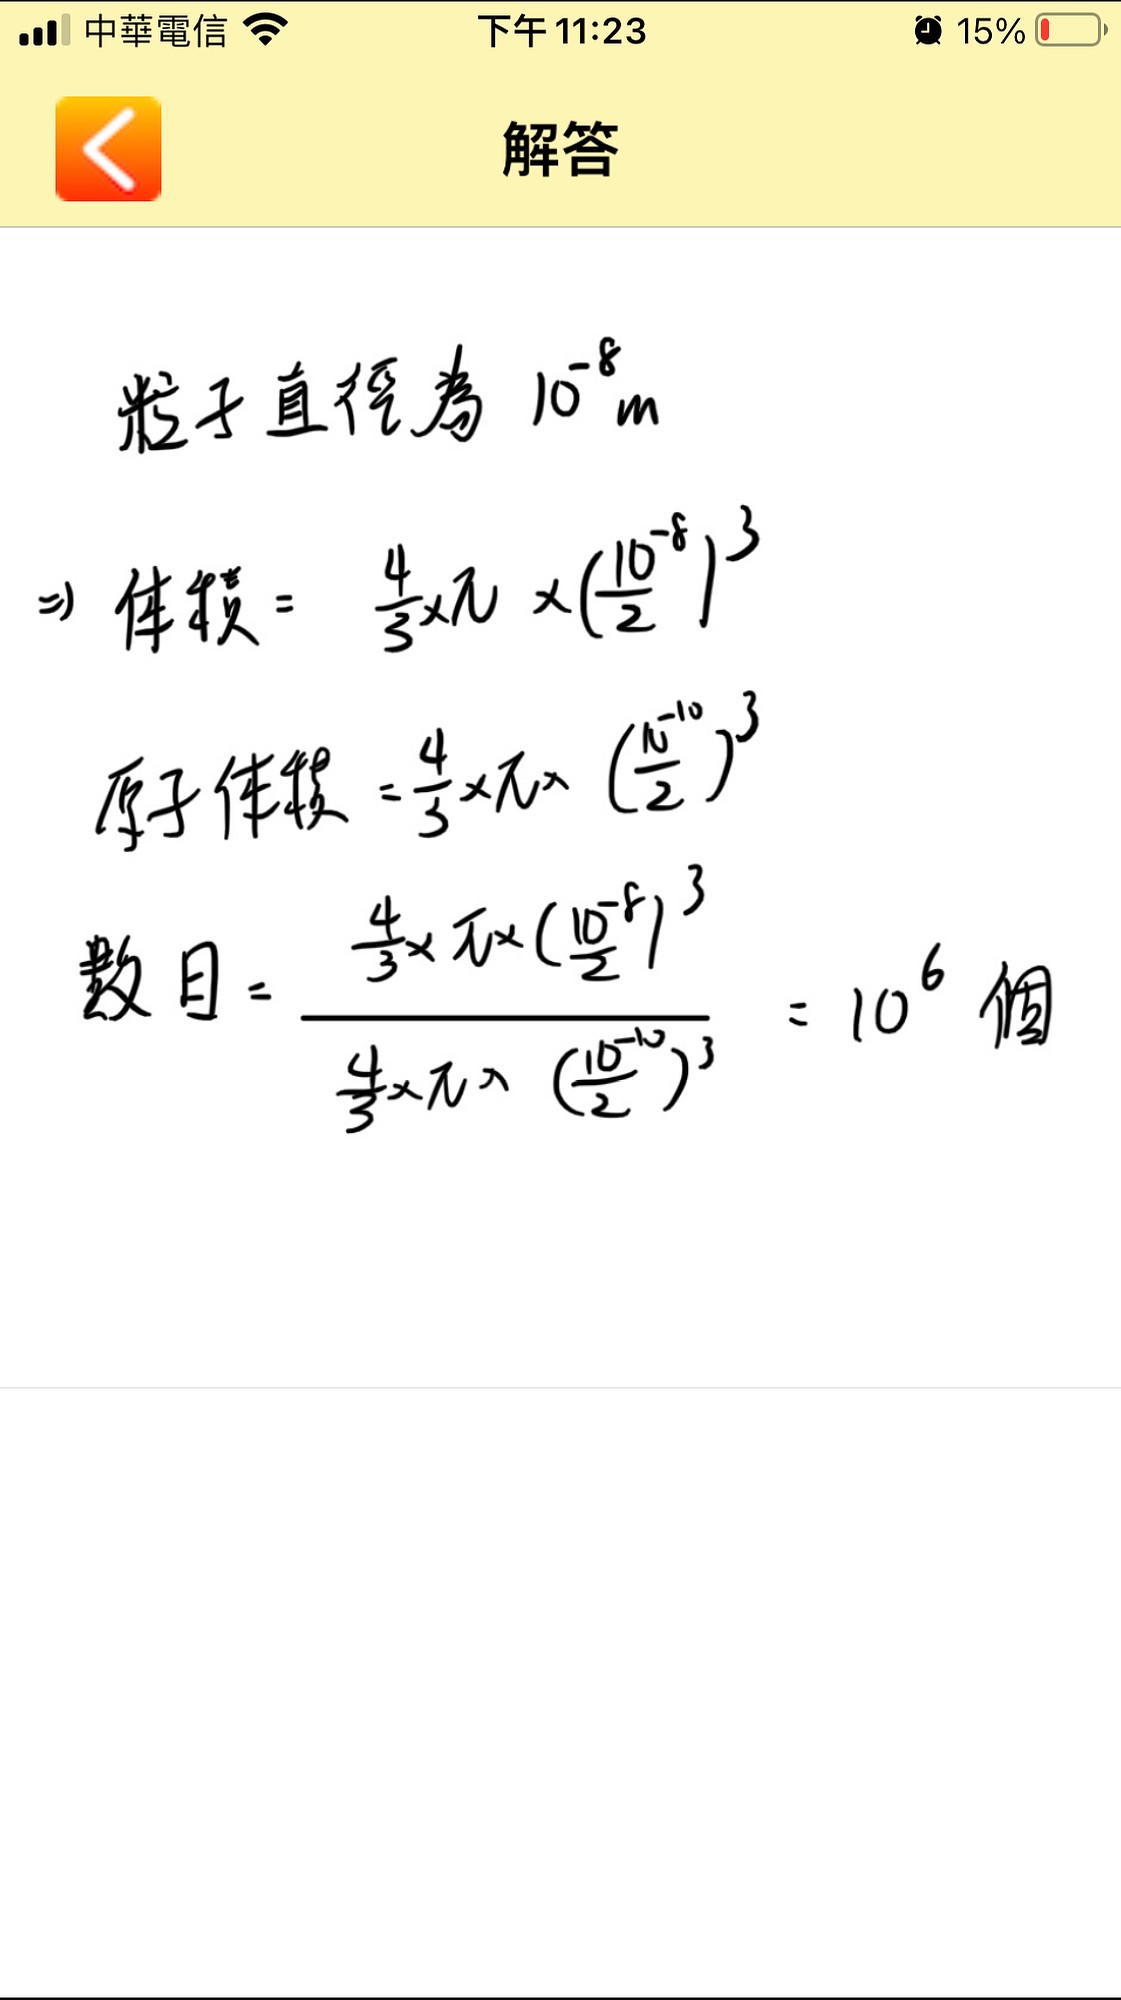 中華電信 下午11:23 15%
解答
粒子直徑為 10⁻⁸m
⇒ 体積 = 4/3 × π × (10⁻⁸/2)³
原子体積 = 4/3 × π × (10⁻¹⁰/2)³
数目 = (4/3 × π × (10⁻⁸/2)³) / (4/3 × π × (10⁻¹⁰/2)³) = 10⁶ 個